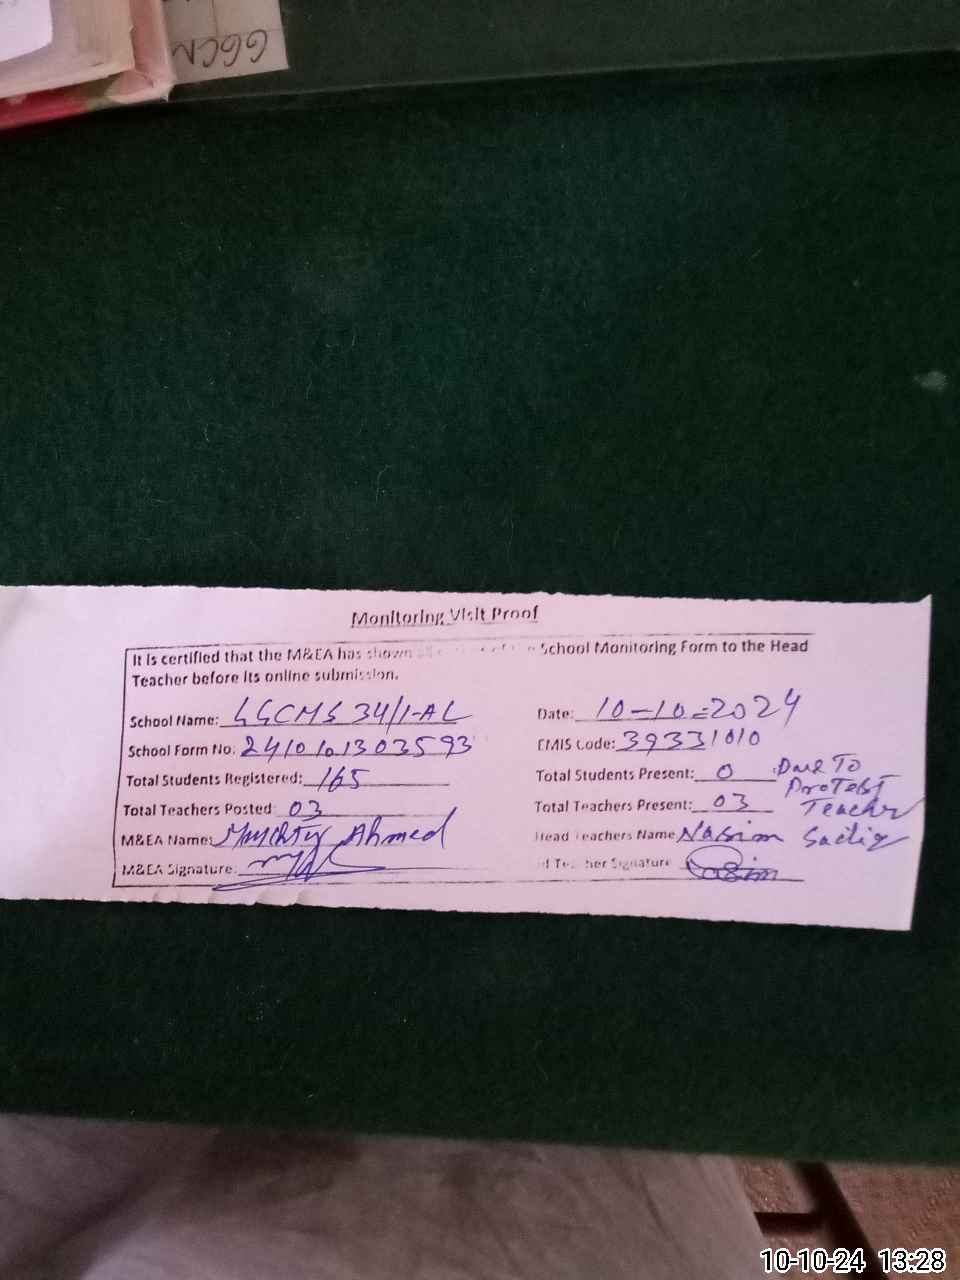 GGCN
Monitoring Visit Proof
It is certified that the M&EA has shown School Monitoring Form to the Head
Teacher before its online submission.
School Name: GGCMS 34/1-AL Date: 10-10-2024
School Form No: 2410101303593 EMIS Code: 39331010
Total Students Registered: 165 Total Students Present: 0 Due To
Protest
Total Teachers Posted: 03 Total Teachers Present: 03 Teacher
M&EA Name: Ahmed Head Teachers Name Nasim Sadiq
M&EA Signature: Teacher Signature
10-10-24 13:28